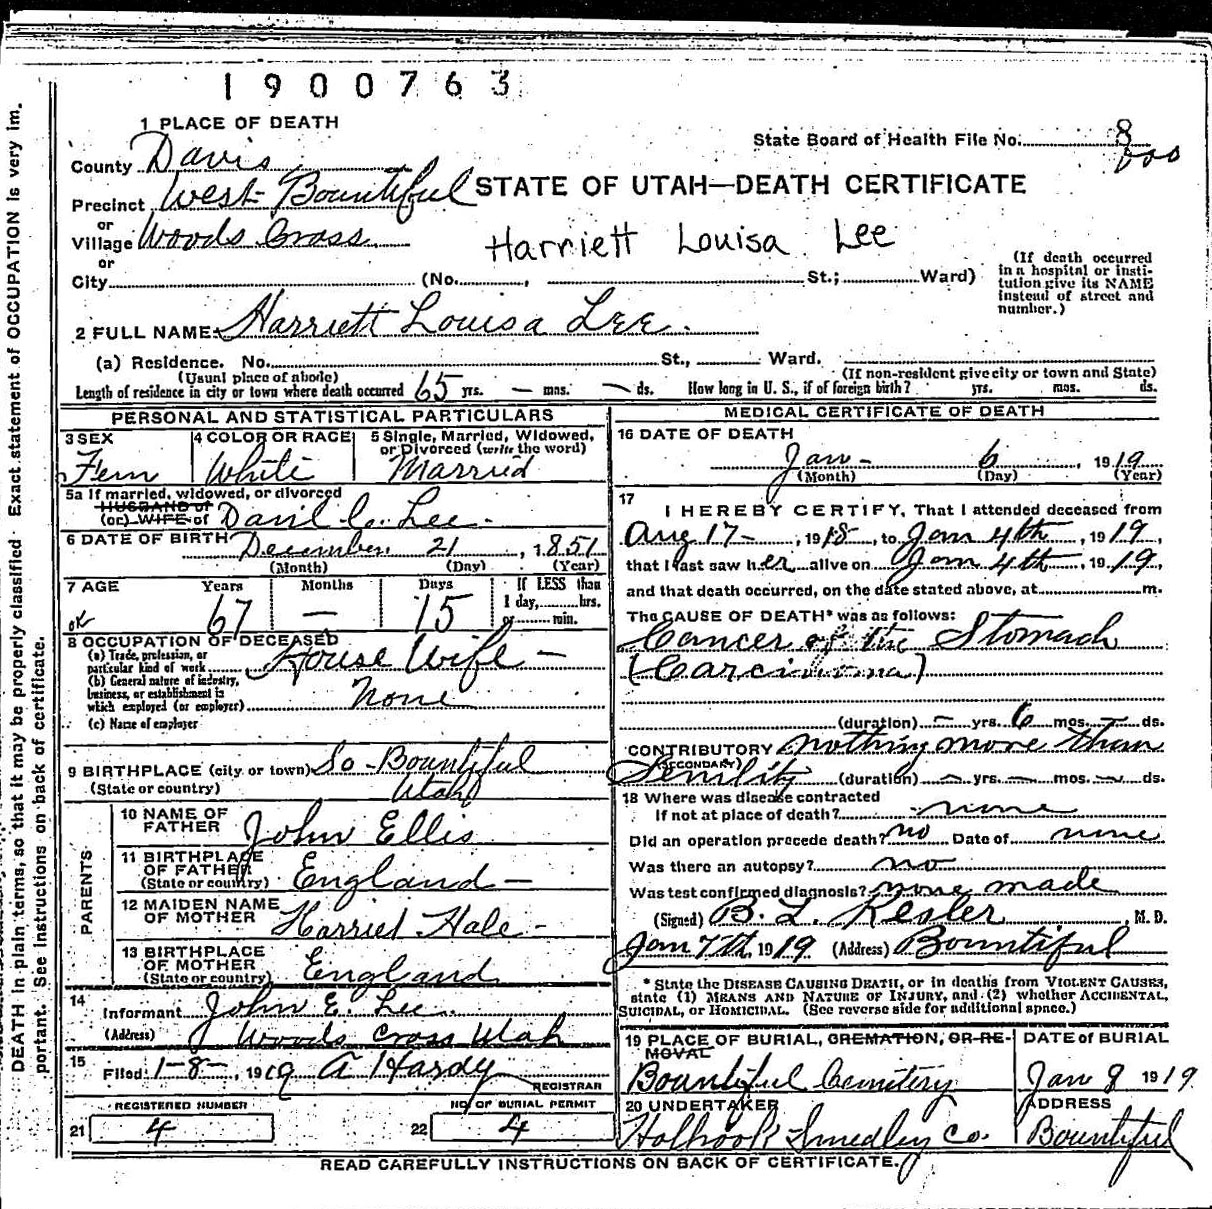 1900763
1 PLACE OF DEATH
State Board of Health File No. 8
County Davis
STATE OF UTAH—DEATH CERTIFICATE
Precinct West Bountiful
or
Village Woods Cross
Harriett Louisa Lee
or
City (No. , St.; Ward)
(If death occurred
in a hospital or insti-
tution give its NAME
instead of street and
number.)
2 FULL NAME Harriett Louisa Lee.
(a) Residence. No. St., Ward.
(Usual place of abode) (If non-resident give city or town and State)
Length of residence in city or town where death occurred 65 yrs. — mos. — ds. How long in U. S., if of foreign birth? yrs. mos. ds.
PERSONAL AND STATISTICAL PARTICULARS
3 SEX 4 COLOR OR RACE 5 Single, Married, Widowed,
or Divorced (write the word)
Fem White Married
5a If married, widowed, or divorced
HUSBAND of
(or) WIFE of C. Lee.
6 DATE OF BIRTH December 21, 1851
(Month) (Day) (Year)
7 AGE Years Months Days If LESS than
1 day, hrs.
or min.
67 — 15
8 OCCUPATION OF DECEASED
(a) Trade, profession, or
particular kind of work House Wife —
(b) General nature of industry,
business, or establishment in
which employed (or employer) None
(c) Name of employer
9 BIRTHPLACE (city or town) So - Bountiful
(State or country) Utah
PARENTS
10 NAME OF
FATHER John Ellis
11 BIRTHPLACE
OF FATHER
(State or country) England —
12 MAIDEN NAME
OF MOTHER Harriet Hale -
13 BIRTHPLACE
OF MOTHER
(State or country) England
14
Informant John E. Lee
(Address) Woods Cross Utah
15
Filed 1-8-, 1919 A Hardy
REGISTRAR
REGISTERED NUMBER NO OF BURIAL PERMIT
21 4 22 4
MEDICAL CERTIFICATE OF DEATH
16 DATE OF DEATH
Jan - 6, 1919
(Month) (Day) (Year)
17
I HEREBY CERTIFY, That I attended deceased from
Aug 17 -, 1918, to Jan 4th, 1919,
that I last saw her alive on Jan 4th, 1919,
and that death occurred, on the date stated above, at m.
The CAUSE OF DEATH* was as follows:
Cancer of the Stomach
(Carcinoma)
(duration) — yrs. 6 mos. — ds.
CONTRIBUTORY nothing more than
(SECONDARY)
Senility (duration) — yrs. — mos. — ds.
18 Where was disease contracted
If not at place of death? none
Did an operation precede death? no Date of none
Was there an autopsy? no
Was test confirmed diagnosis? none made
(Signed) B. L. Kesler, M. D.
Jan 7th 1919 (Address) Bountiful
* State the DISEASE CAUSING DEATH, or in deaths from VIOLENT CAUSES,
state (1) MEANS AND NATURE OF INJURY, and (2) whether ACCIDENTAL,
SUICIDAL, or HOMICIDAL. (See reverse side for additional space.)
19 PLACE OF BURIAL, CREMATION, OR RE- DATE of BURIAL
MOVAL
Bountiful Cemetery Jan 8 1919
20 UNDERTAKER ADDRESS
Holbrook Smedley Co. Bountiful
READ CAREFULLY INSTRUCTIONS ON BACK OF CERTIFICATE.
DEATH in plain terms, so that it may be properly classified Exact statement of OCCUPATION is very im.
portant. See instructions on back of certificate.